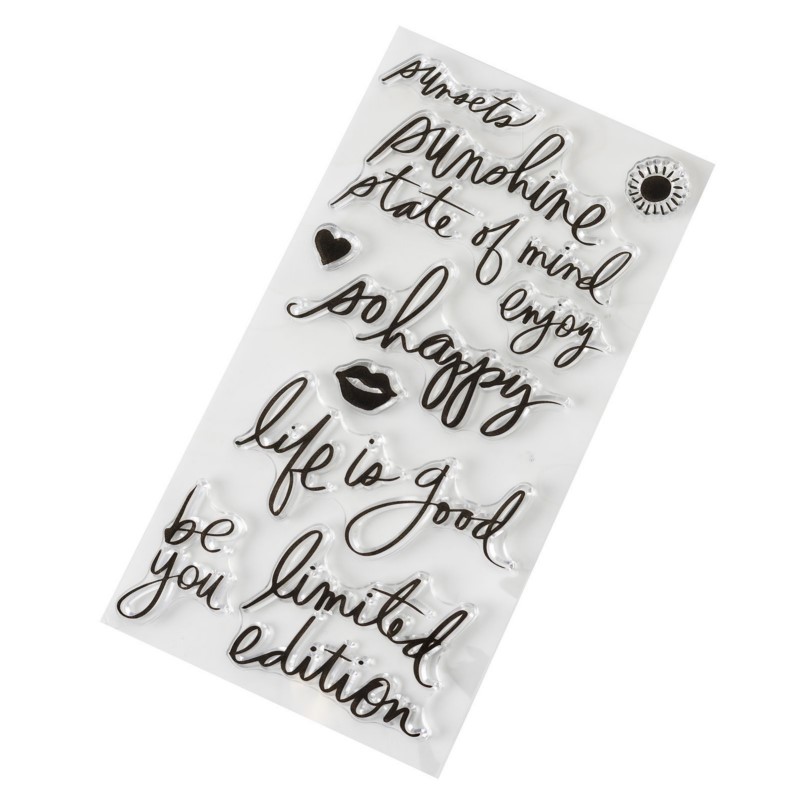 sunsets
sunshine
state of mind
enjoy
so happy
life is good
be
you
limited
edition